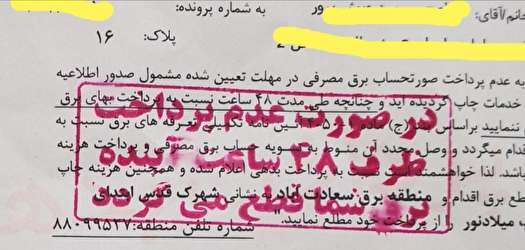 خانم/آقای:
به شماره پرونده:
پلاک: ۱۶
به عدم پرداخت صورتحساب برق مصرفی در مهلت تعیین شده مشمول صدور اطلاعیه
خدمات چاپ گردیده اید و چنانچه طی مدت ۴۸ ساعت نسبت به پرداخت بهای برق
ننمایید براساس بند (ج) ماده نامه تکمیلی تعرفه های برق نسبت به
اقدام میگردد و وصل مجدد این منوط به تسویه حساب برق مصرفی و پرداخت هزینه
باشد. لذا خواهشمند است نسبت به پرداخت بدهی اعلام شده و همچنین هزینه چاپ
قطع برق اقدام و منطقه برق سعادت آباد به نشانی شهرک قدس
میلادنور را از پرداخت خود مطلع نمایید."
شماره تلفن منطقه: ۸۸۰۹۹۵۳۷
در صورت عدم پرداخت
ظرف ۴۸ ساعت آینده
برق شما قطع می گردد